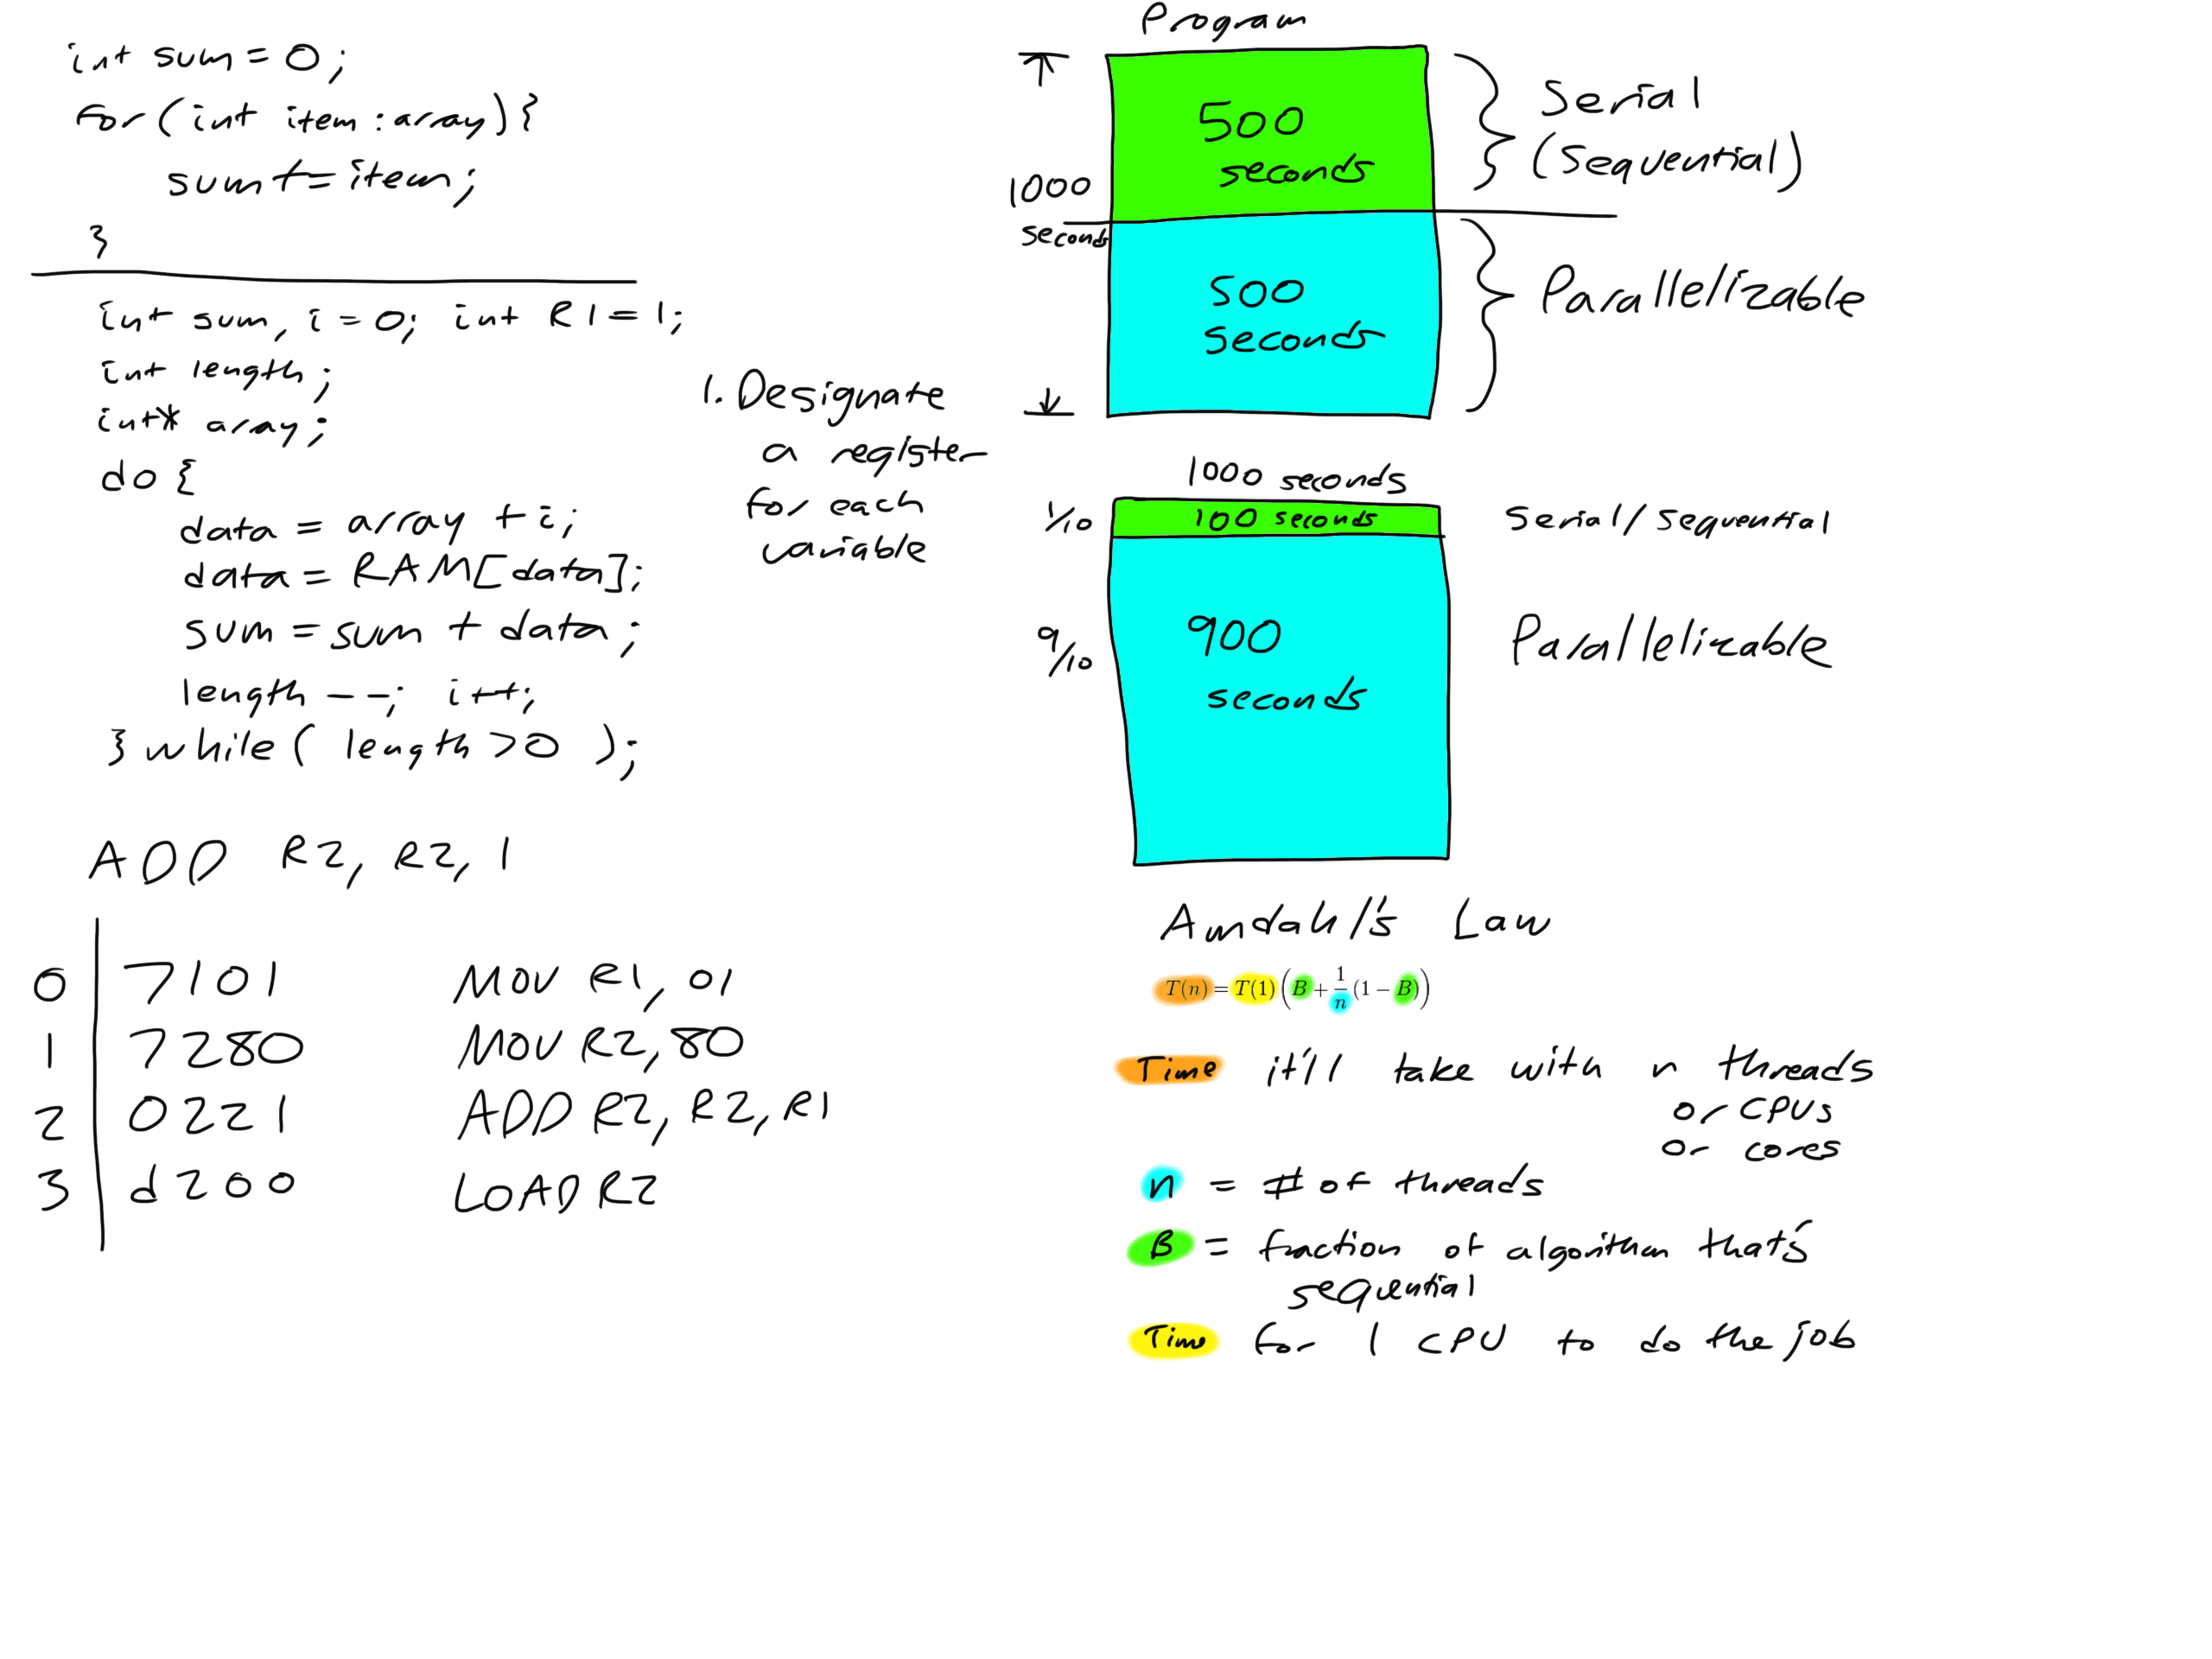 int sum = 0;
for (int item : array) {
sum += item;
}
int sum, i = 0; int R1 = 1;
int length;
int* array;
do {
data = array + i;
data = RAM[data];
sum = sum + data;
length --; i++;
} while ( length > 0 );
1. Designate
a register
for each
variable
ADD R2, R2, 1
0 7101 MOV R1, 01
1 7280 MOV R2, 80
2 0221 ADD R2, R2, R1
3 d200 LOAD R2
Program
1000
seconds
500
seconds
Serial
(Sequential)
500
seconds
Parallelizable
1000 seconds
1/10 100 seconds Serial/Sequential
9/10 900
seconds
Parallelizable
Amdahl's Law
T(n) = T(1) (B + 1/n (1 − B))
Time it'll take with n threads
or CPUs
or cores
n = # of threads
B = fraction of algorithm that's
sequential
Time for 1 CPU to do the job